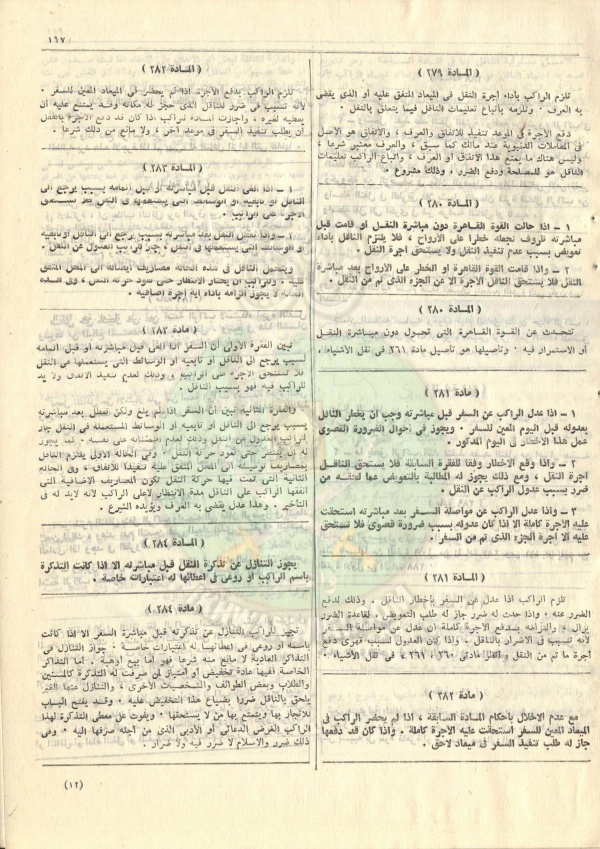 ١٦٧
( المادة ٢٧٩ )
تلزم الراكب بأداء أجرة النقل فى الميعاد المتفق عليه أو الذى يقضى
به العرف ٠ وتلزمه بأتباع تعليمات الناقل فيما يتعلق بالنقل ٠
دفع الأجرة فى الموعد تنفيذ للاتفاق والعرف ، والاتفاق هو الأصل
فى المعاملات الدنيوية عند مالك كما سبق ، والعرف معتبر شرعا ،
وليس هناك ما يمنع هذا الاتفاق أو العرف ، واتباع الراكب تعليمات
الناقل هو للمصلحة ودفع الضرر ، وذلك مشروع ٠
( المادة ٢٨٠ )
١ – اذا حالت القوة القاهرة دون مباشرة النقل أو قامت قبل
مباشرته ظروف تجعله خطرا على الأرواح ، فلا يلتزم الناقل بأداء
تعويض بسبب عدم تنفيذ النقل ولا يستحق أجرة النقل ٠
٢ – واذا قامت القوة القاهرة أو الخطر على الأرواح بعد مباشرة
النقل فلا يستحق الناقل الأجرة الا عن الجزء الذى تم من النقل ٠
( المادة ٢٨٠ )
تتحدث عن القوة القاهرة التى تحول دون مباشرة النقل
أو الاستمرار فيه ٠ وتأصيلها هو تأصيل مادة ٢٦١ فى نقل الأشياء ٠
( مادة ٢٨١ )
١ – اذا عدل الراكب عن السفر قبل مباشرته وجب أن يخطر الناقل
بعدوله قبل اليوم المعين للسفر ٠ ويجوز فى أحوال الضرورة القصوى
عمل هذا الاخطار فى اليوم المذكور ٠
٢ – واذا وقع الاخطار وفقا للفقرة السابقة فلا يستحق الناقل
أجرة النقل ، ومع ذلك يجوز له المطالبة بالتعويض عما لحقه من
ضرر بسبب عدول الراكب عن النقل ٠
٣ – واذا عدل الراكب عن مواصلة السفر بعد مباشرته استحقت
عليه الأجرة كاملة الا اذا كان عدوله بسبب ضرورة قصوى فلا تستحق
عليه الا أجرة الجزء الذى تم من السفر ٠
( المادة ٢٨١ )
تلزم الراكب اذا عدل عن السفر بأخطار الناقل ٠ وذلك لدفع
الضرر عنه ٠ واذا حدث له ضرر جاز له طلب التعويض ، لقاعدة الضرر
يزال ، والتزامه بدفع الأجرة كاملة ان عدل عن مواصلة السفر
لأنه تسبب فى الاضرار بالناقل ٠ واذا كان العدول لسبب قهرى دفع
أجرة ما تم من النقل ٠ أنظر مادتى ٢٦٠ ، ٢٦١ ، فى نقل الأشياء ٠
( مادة ٢٨٢ )
مع عدم الاخلال بأحكام المادة السابقة ، اذا لم يحضر الراكب فى
الميعاد المعين للسفر استحقت عليه الأجرة كاملة ٠ واذا كان قد دفعها
جاز له طلب تنفيذ السفر فى ميعاد لاحق ٠
( المادة ٢٨٢ )
تلزم الراكب بدفع الأجرة اذا لم يحضر فى الميعاد المعين للسفر ٠
لأنه تسبب فى ضرر للناقل الذى حجز له مكانه وقد يمتنع عليه أن
يعطيه لغيره ، وأجازت المادة للراكب اذا كان قد دفع الأجرة بالفعل
أن يطلب تنفيذ السفر فى موعد آخر ، ولا مانع من ذلك شرعا ٠
( المادة ٢٨٣ )
١ – اذا الغى النقل قبل مباشرته أو قبل اتمامه بسبب يرجع الى
الناقل أو تابعيه أو الوسائط التى يستعملها فى النقل فلا تستحق
الأجرة على الراكب ٠
٢ – واذا تعطل النقل بعد مباشرته بسبب يرجع الى الناقل أو تابعيه
أو الوسائط التى يستعملها فى النقل ، جاز للراكب العدول عن النقل ٠
ويتحمل الناقل فى هذه الحالة مصاريف ايصاله الى المحل المتفق
عليه ٠ وللراكب أن يختار الانتظار حتى تعود حركة النقل ، وفى هذه
الحالة لا يجوز الزامه بأداء أية أجرة اضافية ٠
( مادة ٢٨٣ )
تبين الفقرة الأولى أن السفر اذا الغى قبل مباشرته أو قبل اتمامه
لسبب يرجع الى الناقل أو تابعيه أو الوسائط التى يستعملها فى النقل
فلا تستحق الأجرة على الراكب ٠ وذلك لعدم تنفيذ الاتفاق ولا يد
للراكب فيه فهو بسبب الناقل ٠
والفقرة الثانية تبين أن السفر اذا لم يلغ ولكن تعطل بعد مباشرته
بسبب يرجع الى الناقل أو تابعيه أو الوسائط المستعملة فى النقل جاز
للراكب العدول عن النقل وذلك لعدم ائتمانه على نفسه ٠ كما يجوز
له أن ينتظر حتى تعود حركة النقل ٠ وفى الحالة الأولى يلتزم الناقل
بمصاريف توصيله الى المحل المتفق عليه تنفيذا للاتفاق ، وفى الحالة
الثانية التى تمت فيها حركة النقل تكون المصاريف الاضافية التى
أنفقها الراكب على الناقل مدة الانتظار لا على الراكب لأنه لا يد له فى
التأخير ٠ وهذا عدل يقضى به العرف ويؤيده الشرع ٠
( المادة ٢٨٤ )
يجوز التنازل عن تذكرة النقل قبل مباشرته الا اذا كانت التذكرة
باسم الراكب أو روعى فى اعطائها له اعتبارات خاصة ٠
( مادة ٢٨٤ )
تجيز للراكب التنازل عن تذكرته قبل مباشرة السفر الا اذا كانت
باسمه أو روعى فى اعطائها له اعتبارات خاصة ٠ جواز التنازل فى
التذاكر العادية لا مانع منه شرعا فهو أما بيع أو هبة ٠ أما التذاكر
الخاصة ففيها عادة تخفيض أو امتياز لمن صرفت له التذكرة كالمسنين
والطلاب وبعض الطوائف والشخصيات الأخرى ، والتنازل عنها للغير
يلحق بالناقل ضررا بضياع هذا التخفيض عليه ٠ وقد يفتح الباب
للاتجار بها ويتمتع بها من لا يستحقها ٠ ويفوت على معطى التذكرة لهذا
الراكب الغرض الدعائى أو الأدبى الذى من أجله صرفها اليه ٠ وفى
ذلك ضرر والاسلام لا ضرر فيه ولا ضرار ٠
(١٢)